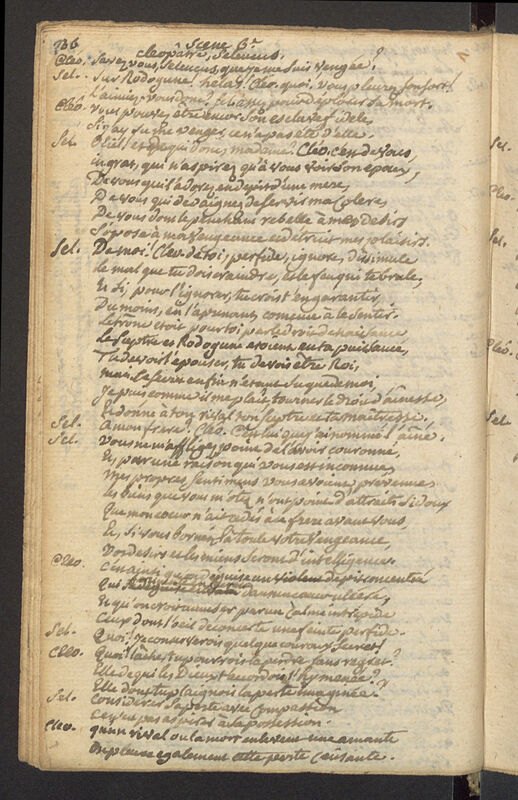 236
Scene 6.e
Cleopâtre, Seleucus.
Cleo. Savez vous, Seleucus, que je me suis vengée?
Sel. Sur Rodogune! helas! Cleo. quoi, vous pleurez son sort!
L'aimiez-vous donc pour deplorer sa mort.
Cleo. Vous pouvez être encor son esclave fidele,
Si j'ay su me venger, ce n'a pas été d'elle.
Sel. O ciel! et de qui donc, madame? Cleo. c'en de vous,
ingrat, qui n'aspirez qu'à vous voir son epoux,
De vous qui l'adorez en depit d'une mere,
De vous qui dedaignez de servir ma colere,
De vous dont le penchant rebelle à mes desirs
S'opose à ma vengeance et detruit mes plaisirs.
Sel. De moi! Cleo. de toi, perfide, ignore, dissimule
le mal que tu dois craindre, et le feu qui te brule,
Et si, pour l'ignorer, tu crois t'en garantir,
Du moins, en l'aprenant, comence à le sentir.
Le trône etoit pour toi par le droit de naissance
Le sceptre et Rodogune etoient en ta puissance,
Tu devois l'epouser, tu devois être Roi,
mais le secret enfin n'étant su que de moi,
Je puis comme il me plait tourner le droit d'ainesse,
Et donne à ton rival ton sceptre et ta maitresse.
Sel. A mon frere! Cleo. C'en lui que j'ai nommé l'ainé.
Sel. Vous ne m'affligez point de l'avoir couronné,
Et par une raison qui vous est inconnue,
Mes propres sentimens vous avoient prevenue
les biens que vous m'otez n'ont point d'attraits si doux
Que mon coeur n'ait cedés à ce frere avant vous
Et, si vous bornez là toute votre vengeance,
Vos desirs et les miens seront d'intelligence.
Cleo. C'en ainsi qu'on deguise un violent depit concentré
Qui
Et qu'on croit amuser par un calme intrepide
Ceux dont l'oeil deconcerte une feinte perfide.
Sel. Quoi! Je conserverois quelque couroux secret?
Cleo. Quoi! lâche, tu pourrois la perdre sans regret?
Elle de qui les Dieux t'accordoient l'hymenée?
Elle dont tu plaignois la perte imaginée?
Sel. Considerer sa perte avec compassion
Ce n'en pas aspirer à sa possession.
Cleo. qu'un rival ou la mort enleve une amante
On pleure egalement cette perte cuisante.
Sel.
Cleo
Sel.
Cleo
Sel.